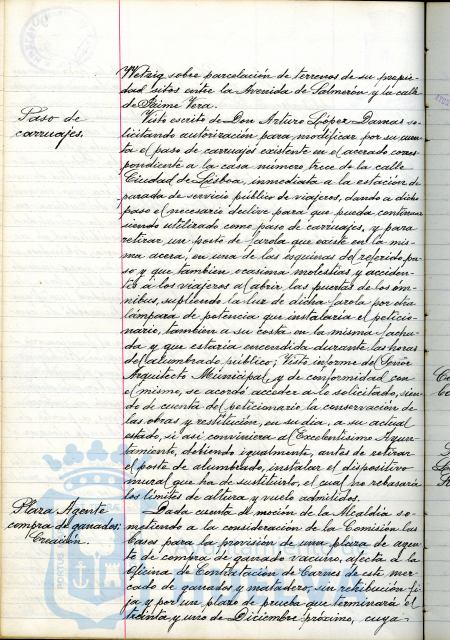 Wetzig sobre parcelación de terrenos de su propie-
dad sitos entre la Avenida de Salmerón y la calle
de Jaime Vera.
Paso de
carruajes.
Visto escrito de Don Arturo López Damas so-
licitando autorización para modificar por su cuen-
ta el paso de carruajes existente en el acerado corres-
pondiente a la casa número trece de la calle
Ciudad de Lisboa, inmediata a la estación de
parada de servicio público de viajeros, dando a dicho
paso el necesario declive para que pueda continuar
siendo utilizado como paso de carruajes, y para
retirar un poste de farola que existe en la mis-
ma acera, en una de las esquinas del referido pa-
so y que tambien ocasiona molestias y acciden-
tes a los viajeros al abrir las puertas de los óm-
nibus, supliendo la luz de dicha farola por otra
lámpara de potencia que instalaría el peticio-
nario, tambien a su costa en la misma facha-
da y que estaría encendida durante las horas
del alumbrado público; Visto informe del Señor
Arquitecto Municipal, y de conformidad con
el mismo, se acordó acceder a lo solicitado, sien-
do de cuenta del peticionario la conservación de
las obras y restitución, en su dia, a su actual
estado, si así conviniera al Excelentísimo Ayun-
tamiento, debiendo igualmente, antes de retirar
el poste de alumbrado, instalar el dispositivo
mural que ha de sustituirlo, el cual no rebasaría
los límites de altura y vuelo admitidos.
Plaza Agente
compra de ganados:
Creación.
Dada cuenta de moción de la Alcaldía so-
metiendo a la consideración de la Comisión las
bases para la provisión de una plaza de agen-
te de compra de ganado vacuno, afecta a la
Oficina de Contratación de Carnes de este mer-
cado de ganados y matadero, sin retribución fi-
ja y por un plazo de prueba que terminaría el
treinta y uno de Diciembre próximo, cuya